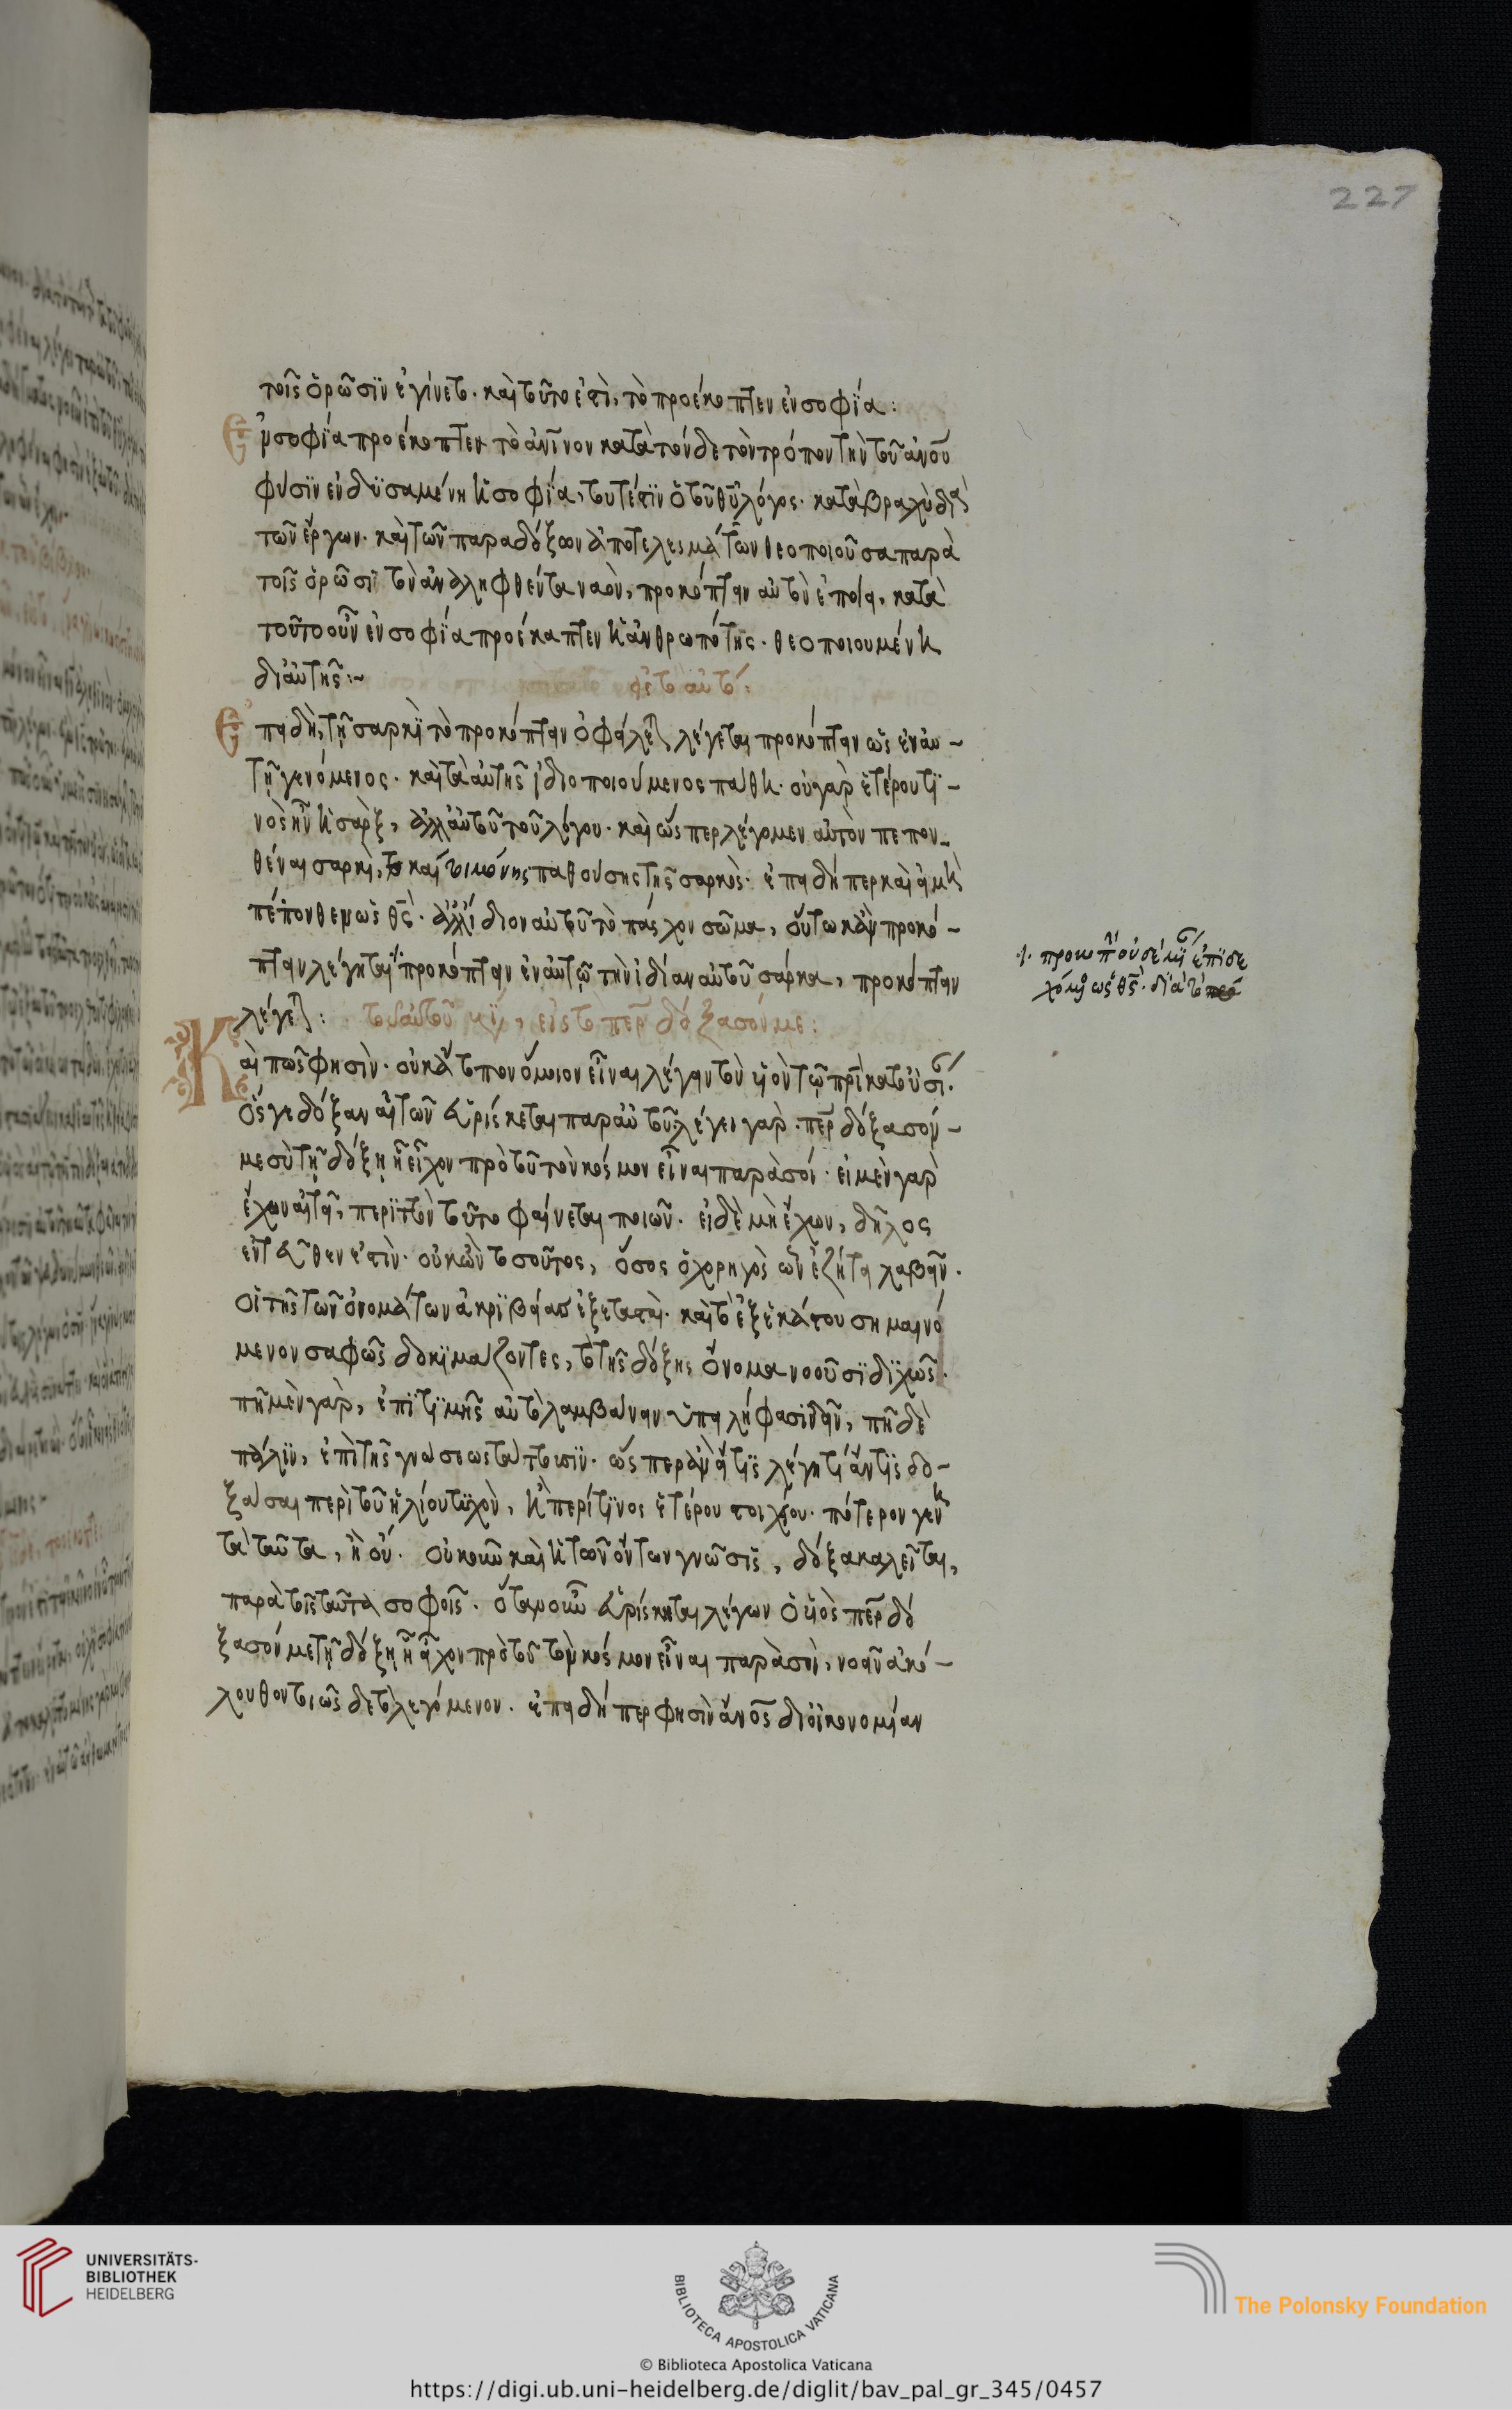 227
τοῖς ὁρῶσιν ἐγίνετο. καὶ τοῦτο ἐστὶ, τὸ προέκοπτεν ἐν σοφία:
Ἐν σοφία προέκοπτεν τὸ ἀνινον κατὰ τόνδε τὸν τρόπον τὴν τοῦ ἀνου
φύσιν ἐνδυσαμένη ἡ σοφία, τουτέστιν ὁ τοῦ θυ λόγος. κατὰ βραχὺ διὰ
τῶν ἔργων. καὶ τῶν παραδόξων ἀποτελεσμάτων θεοποιοῦσα παρὰ
τοῖς ὁρῶσι τὸν ἀναληφθέντα ναὸν, προκόπτειν αὐτὸν ἐποίει, κατὰ
τοῦτο οὖν ἐν σοφία προέκοπτεν ἡ ἀνθρωπότης. θεοποιουμένη
δι αὐτῆς:~
Ἐπειδὴ, τῇ σαρκὶ τὸ προκόπτειν ὀφείλεται λέγεται προκόπτειν ὡς ἐν αυ-
τῇ γενόμενος. καὶ τὰ αὐτῆς ἰδιοποιούμενος πάθη. οὐ γὰρ ἑτέρου τι-
νὸς ἦν ἡ σὰρξ, ἀλλ αὐτοῦ τοῦ λόγου. καὶ ὥσπερ λέγομεν αὐτὸν πεπον-
θέναι σαρκὶ, καὶ τοι μόνης παθούσης τῆς σαρκὸς. ἐπειδήπερ καὶ εἰ μὴ
πέπονθεν ὡς θς. ἀλλ ἴδιον αὐτοῦ τὸ πάσχον σῶμα, οὕτω κἂν προκό-
πτειν λέγηται προκόπτειν ἐν αὐτῷ τὴν ἰδίαν αὐτοῦ σάρκα, προκόπτειν
λέγεται: τοῦ αὐτοῦ εἰς τὸ περ δόξασόν με:
Καὶ πῶς φησὶν. οὐκ ἄτοπον ὅμοιον εἶναι λέγειν τὸν υἱὸν τῷ πρι κατ οὐσι.
ὅς γε δόξαν αἰτῶν εὑρίσκεται παρ αὐτοῦ λέγει γὰρ. περ δόξασόν
με σὺ τῇ δόξῃ ᾗ εἶχον πρὸ τοῦ τὸν κόσμον εἶναι παρὰ σοί. εἰ μὲν γὰρ
ἔχων αἰτεῖ, περιττὸν τοῦτο φαίνεται ποιῶν. εἰ δὲ μὴ ἔχων, δῆλος
ἐντεῦθεν ἐστὶν. οὐκ ὢν τοσοῦτος, ὅσος ὁ χορηγὸς ὧν ἐζήτει λαβεῖν.
οἱ τῆς τῶν ὀνομάτων ἀκριβείας ἐξετασταὶ. καὶ τὸ ἐξ ἑκάστου σημαινό
μενον σαφῶς δοκιμάζοντες, τὸ τῆς δόξης ὄνομα νοοῦσι διχῶς.
πῆ μὲν γὰρ, ἐπὶ τιμῆς αὐτὸ λαμβάνειν ὑπειλήφασι δεῖν, πῆ δὲ
πάλιν, ἐπὶ τῆς γνώσεως τάττουσιν. ὥσπερ ἂν εἴ τις λέγη τί ἄν τις δο-
ξάσαι περὶ τοῦ ἡλίου τυχὸν, ἢ περί τινος ἑτέρου στοιχείου. πότερον γεν
τὰ ταῦτα, ἢ οὐ. οὐκοῦν καὶ ἡ τῶν ὄντων γνῶσις, δόξα καλεῖται,
παρὰ τοῖς ταῦτα σοφοῖς. ὅταν οὖν εὑρίσκηται λέγων ὁ υἱὸς περ δό
ξασόν με τῇ δόξῃ ᾗ εἶχον πρὸ τοῦ τὸν κόσμον εἶναι παρὰ σοὶ, νοεῖν ἀκό-
λουθον οὕτως δε τὸ λεγόμενον. ἐπειδήπερ φησὶν ἄνος δι οἰκονομίαν
UNIVERSITÄTS-
BIBLIOTHEK
HEIDELBERG
BIBLIOTECA APOSTOLICA VATICANA
The Polonsky Foundation
© Biblioteca Apostolica Vaticana
https://digi.ub.uni-heidelberg.de/diglit/bav_pal_gr_345/0457